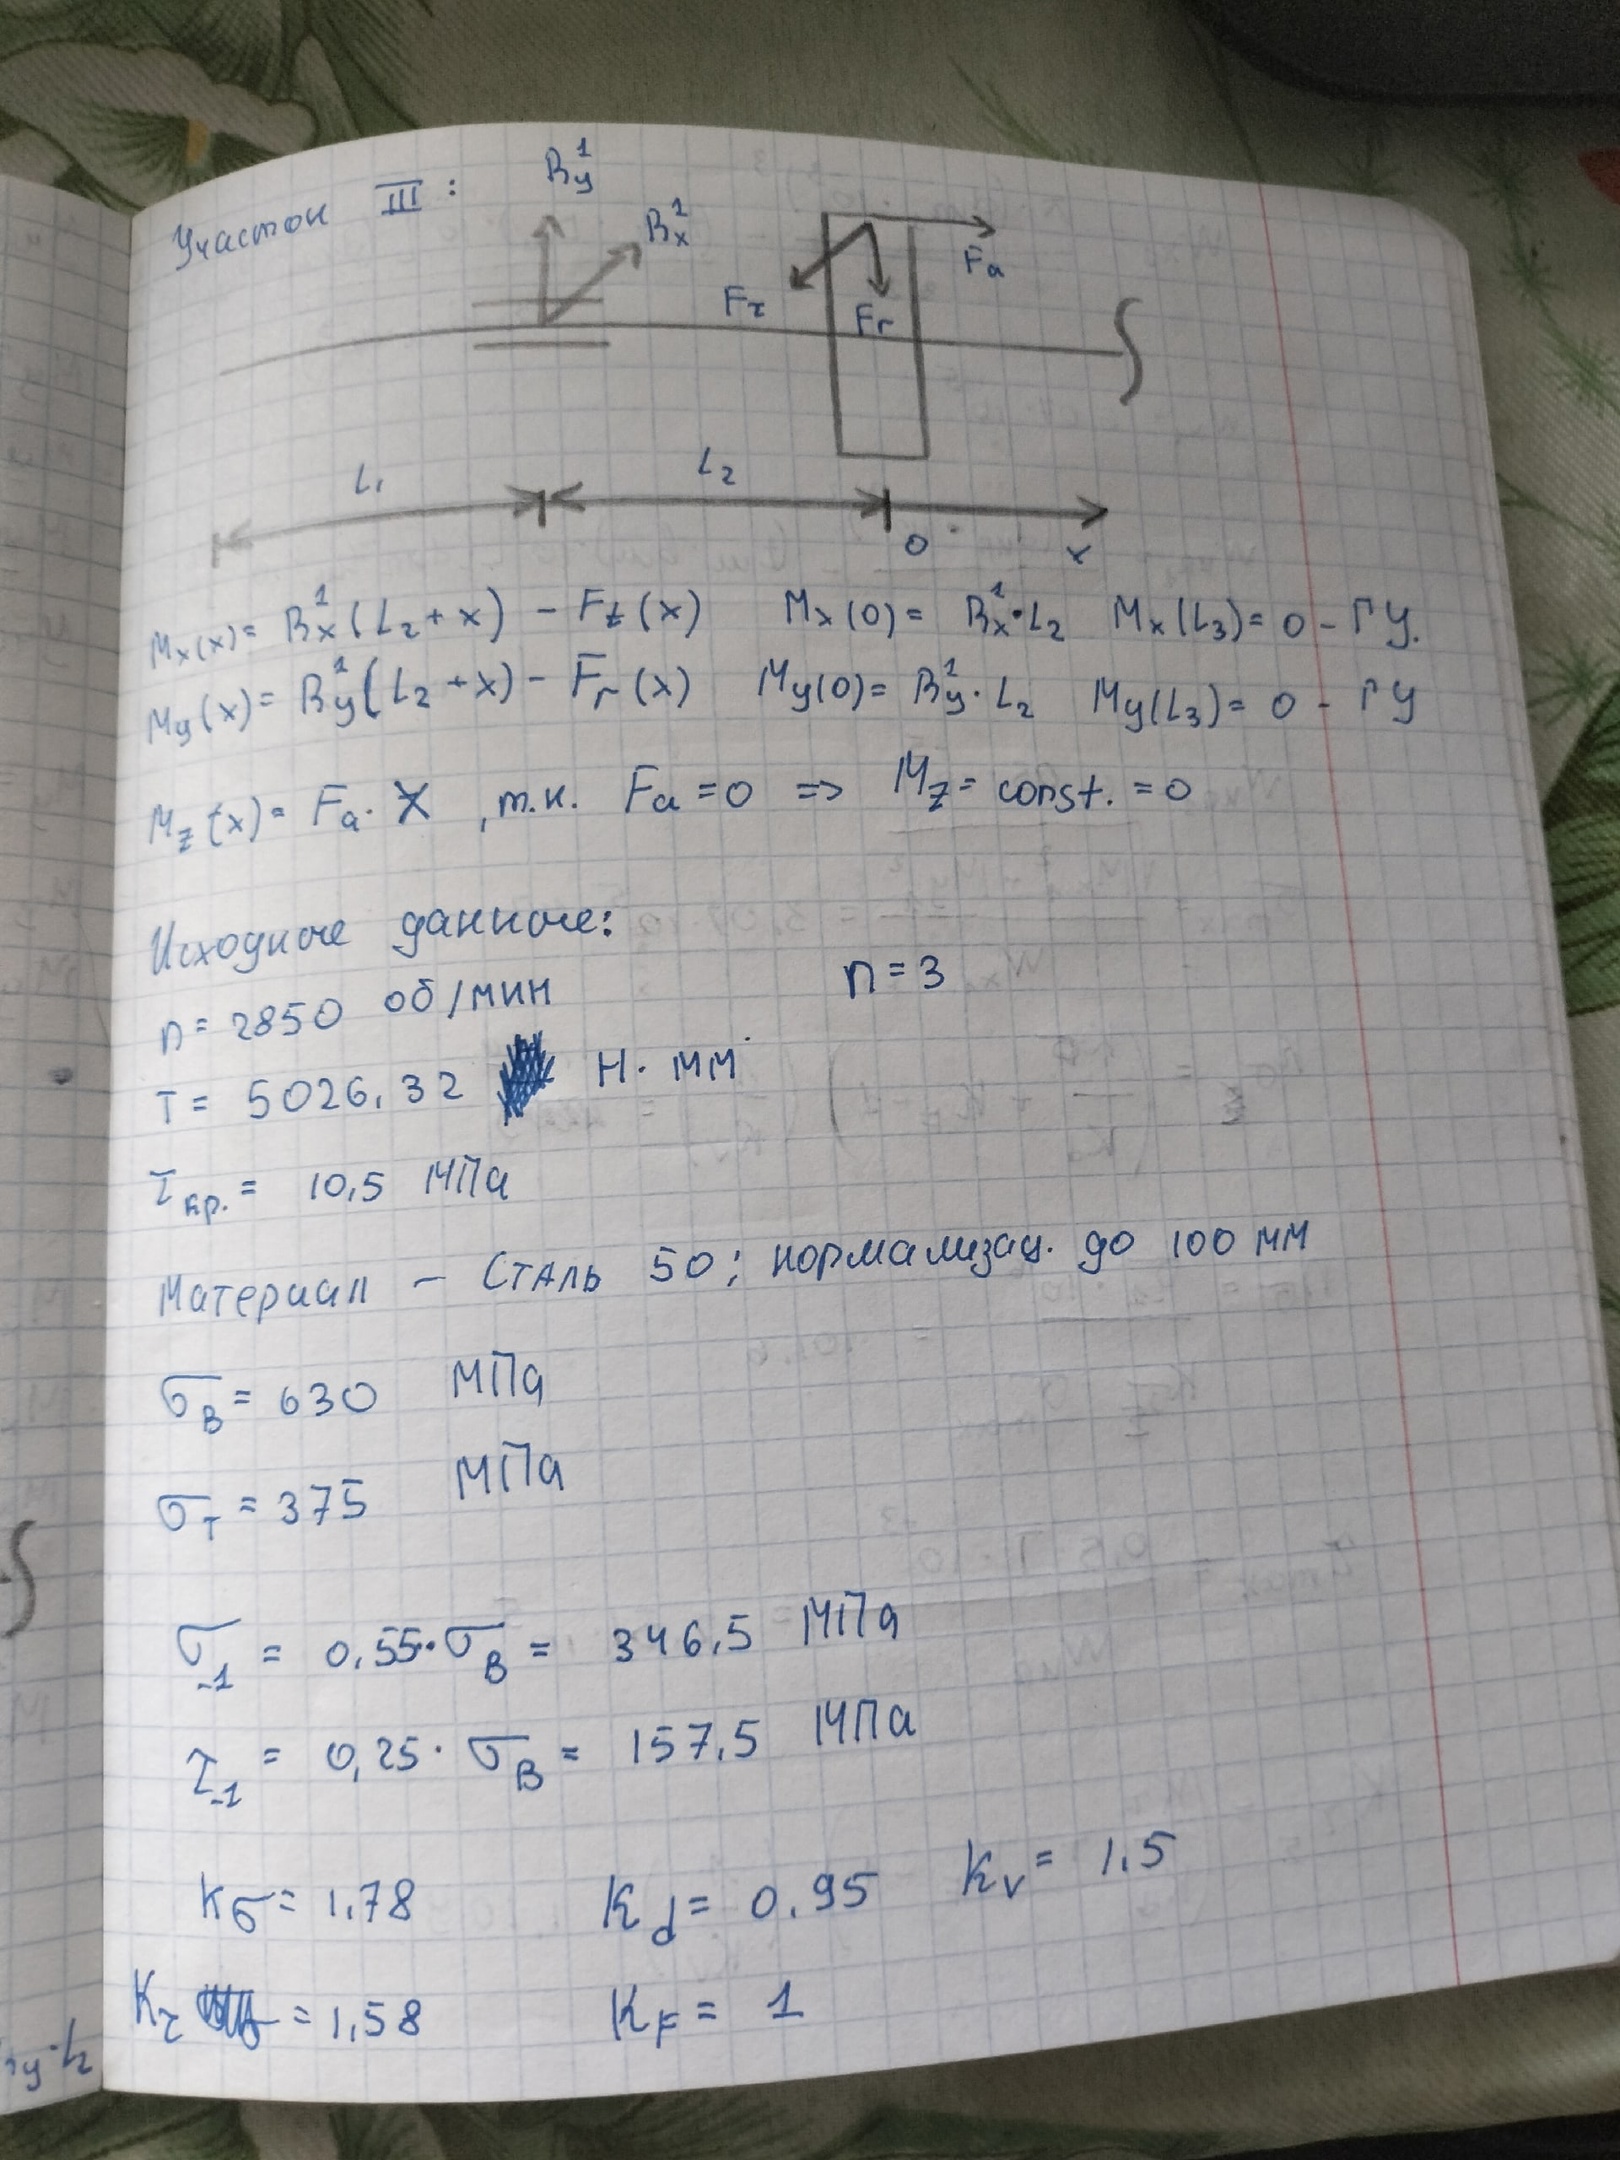 Участок III:
B_y^1
B_x^1
F_a
F_τ
F_r
L_1
L_2
0
x
M_x(x) = B_x^1(L_2+x) - F_t(x) M_x(0) = B_x^1·L_2 M_x(L_3) = 0 - ГУ.
M_y(x) = B_y^1(L_2+x) - F_r(x) M_y(0) = B_y^1·L_2 M_y(L_3) = 0 - ГУ
M_z(x) = F_a·X, т.к. F_a = 0 => M_z = const. = 0
Исходные данные:
n = 2850 об/мин n = 3
T = 5026,32 Н·мм
τ_кр. = 10,5 МПа
Материал - Сталь 50; нормализац. до 100 мм
σ_B = 630 МПа
σ_T = 375 МПа
σ_-1 = 0,55·σ_B = 346,5 МПа
τ_-1 = 0,25·σ_B = 157,5 МПа
K_σ = 1,78 K_d = 0,95 K_v = 1,5
K_τ = 1,58 K_F = 1